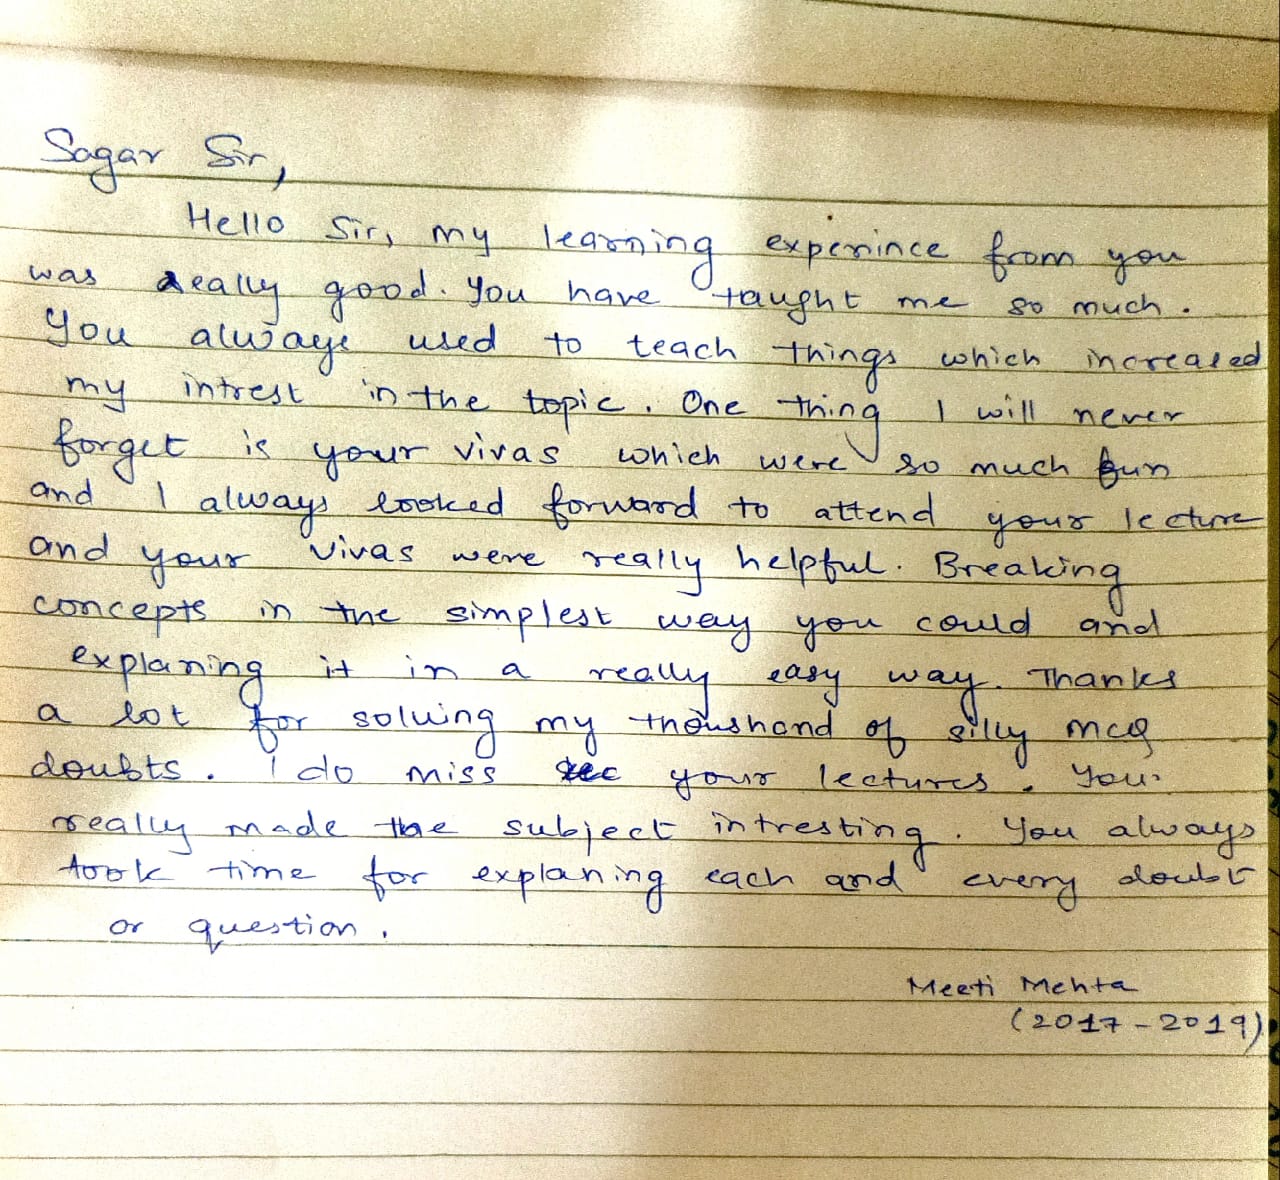 Sagar Sir,
Hello Sir, my learning experince from you
was really good. You have taught me so much.
You always used to teach things which increased
my intrest in the topic. One thing I will never
forget is your vivas which were so much fun
and I always looked forward to attend your lecture
and your vivas were really helpful. Breaking
concepts in the simplest way you could and
explaning it in a really easy way. Thanks
a lot for solving my thoushand of silly mcq
doubts. I do miss your lectures. You
really made the subject intresting. You always
took time for explaning each and every doubt
or question.
Meeti Mehta
(2017-2019)